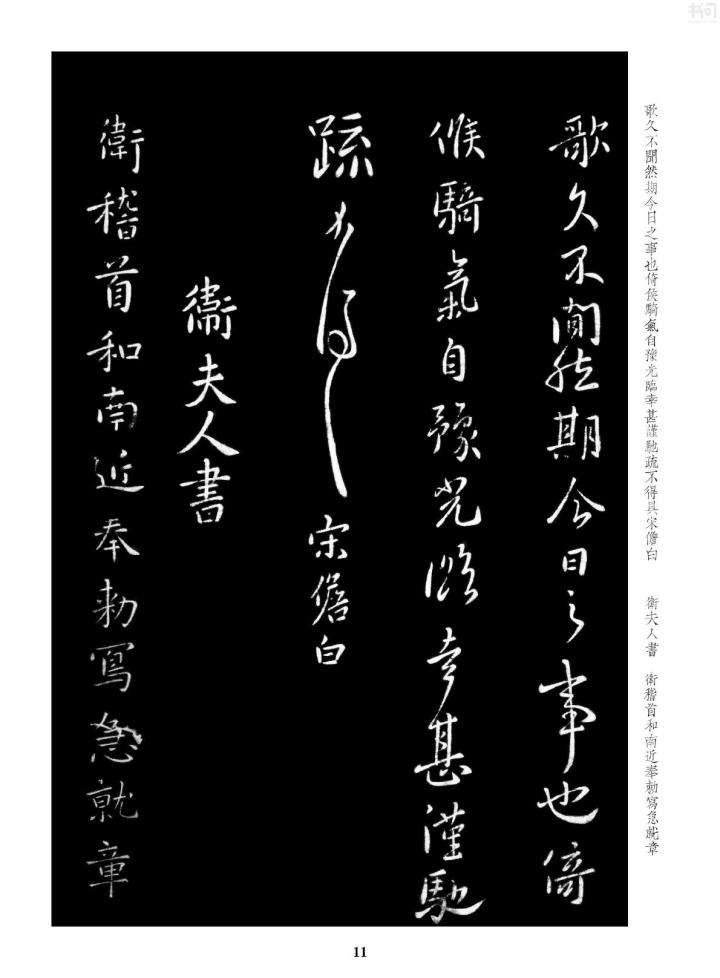 歌久不聞然期今日之事也倚
候騎氣自豫光臨幸甚謹馳
疏不得具宋儋白
衛夫人書
衛稽首和南近奉勅寫急就章
歌久不聞然期今日之事也倚候騎氣自豫光臨幸甚謹馳疏不得具宋儋白
衛夫人書 衛稽首和南近奉勅寫急就章
11
书问